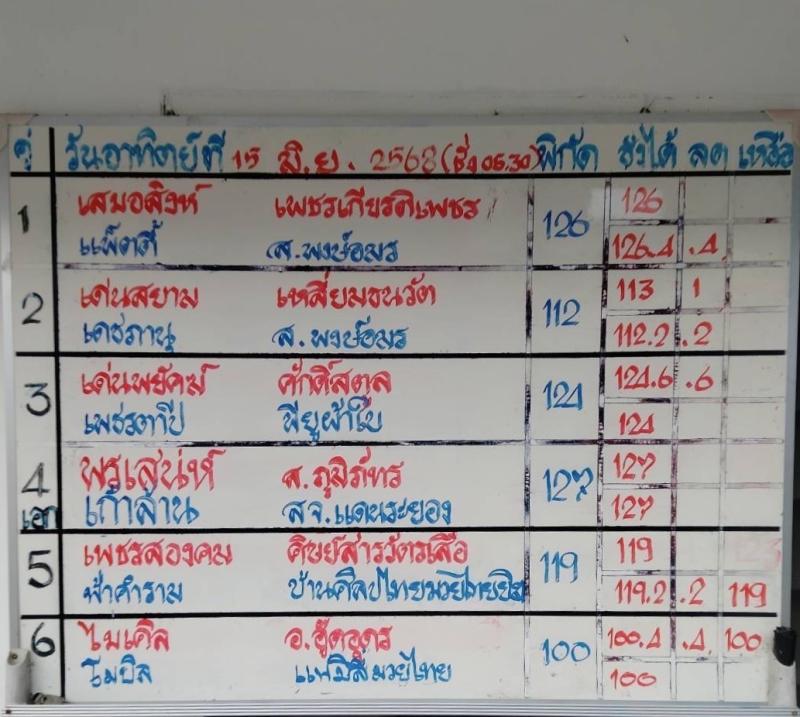 คู่ วันอาทิตย์ที่ 15 มิ.ย. 2568 (ชั่ง 05.30) พิกัด ชั่งได้ ลด เหลือ
1 เสมอสิงห์ เพชรเกียรติเพชร 126 126
แพ็ตตี้ ส.พงษ์อมร 126.4 .4
2 เด่นสยาม เหลี่ยมธนวัต 112 113 1
เดชภานุ ส.พงษ์อมร 112.2 .2
3 เด่นพยัคฆ์ ศักดิ์สตูล 124 124.6 .6
เพชรตาปี พียูผ้าใบ 124
4 พรเสน่ห์ ส.ภูมิภัทร 127 127
เอก เก้าล้าน สจ.แดนระยอง 127
5 เพชรสองคม ศิษย์สารวัตรเสือ 119 119
ฟ้าคำราม บ้านศิลปไทยมวยไทยยิม 119.2 .2 119
6 ไมเคิล อ.อู๊ดอุดร 100 100.4 .4 100
โมบิล แฟมิลี่มวยไทย 100